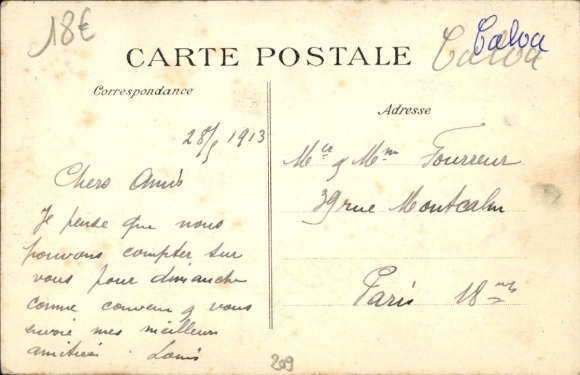 18€
CARTE POSTALE
Calva
Calva
Correspondance
Adresse
28/5 1913
Chers Amis
Je pense que nous
pouvons compter sur
vous pour dimanche
comme convenu & vous
envoie mes meilleurs
amitiés. Louis
Mr & Mme Fourreur
39 rue Montcalm
Paris 18me
209